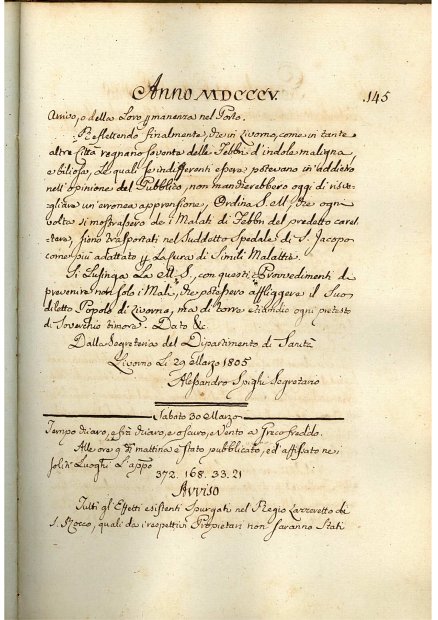 Anno MDCCCV.
.145
Arrivo, o della Loro pmanenza nel Porto.
Reflettendo finalmente, che in Livorno, come in tante
altre Città regnano sovente delle Febbri d'indole maligna,
e biliosa, Le quali se indifferenti essere potevano in addietro
nell'opinione del Pubblico, non mancherebbero oggi di risve-
gliare un'erronea apprensione, Ordina S. M., che ogni
volta si mostrassero de i Malati di Febbri del predetto carat-
tere, siano trasportati nel Suddetto Spedale di S. Jacopo
come più adattato p La cura di Simili Malattie.
Si Lusinga La M. S., con questi Provvedimenti di
prevenire non solo i Mali, che potessero affliggere il Suo
diletto Popolo di Livorno, ma di torre eziandio ogni pretesto
di Soverchio timore. Dato &c.
Dalla Segreteria del Dipartimento di Sanità
Livorno Li 29 Marzo 1805
Alessandro Spighi Segretario
Sabato 30 Marzo
Tempo chiaro, e chiaro, e oscuro, e Vento a Greco freddo.
Alle ore 9 mattina è stato pubblicato, ed affissato nei
soliti Luoghi L'appo
372. 168. 33. 21
Avviso
Tutti gl'Effetti esistenti Spurgati nel Regio Lazzeretto di
S. Rocco, quali da i respettivi Proprietari non saranno Stati